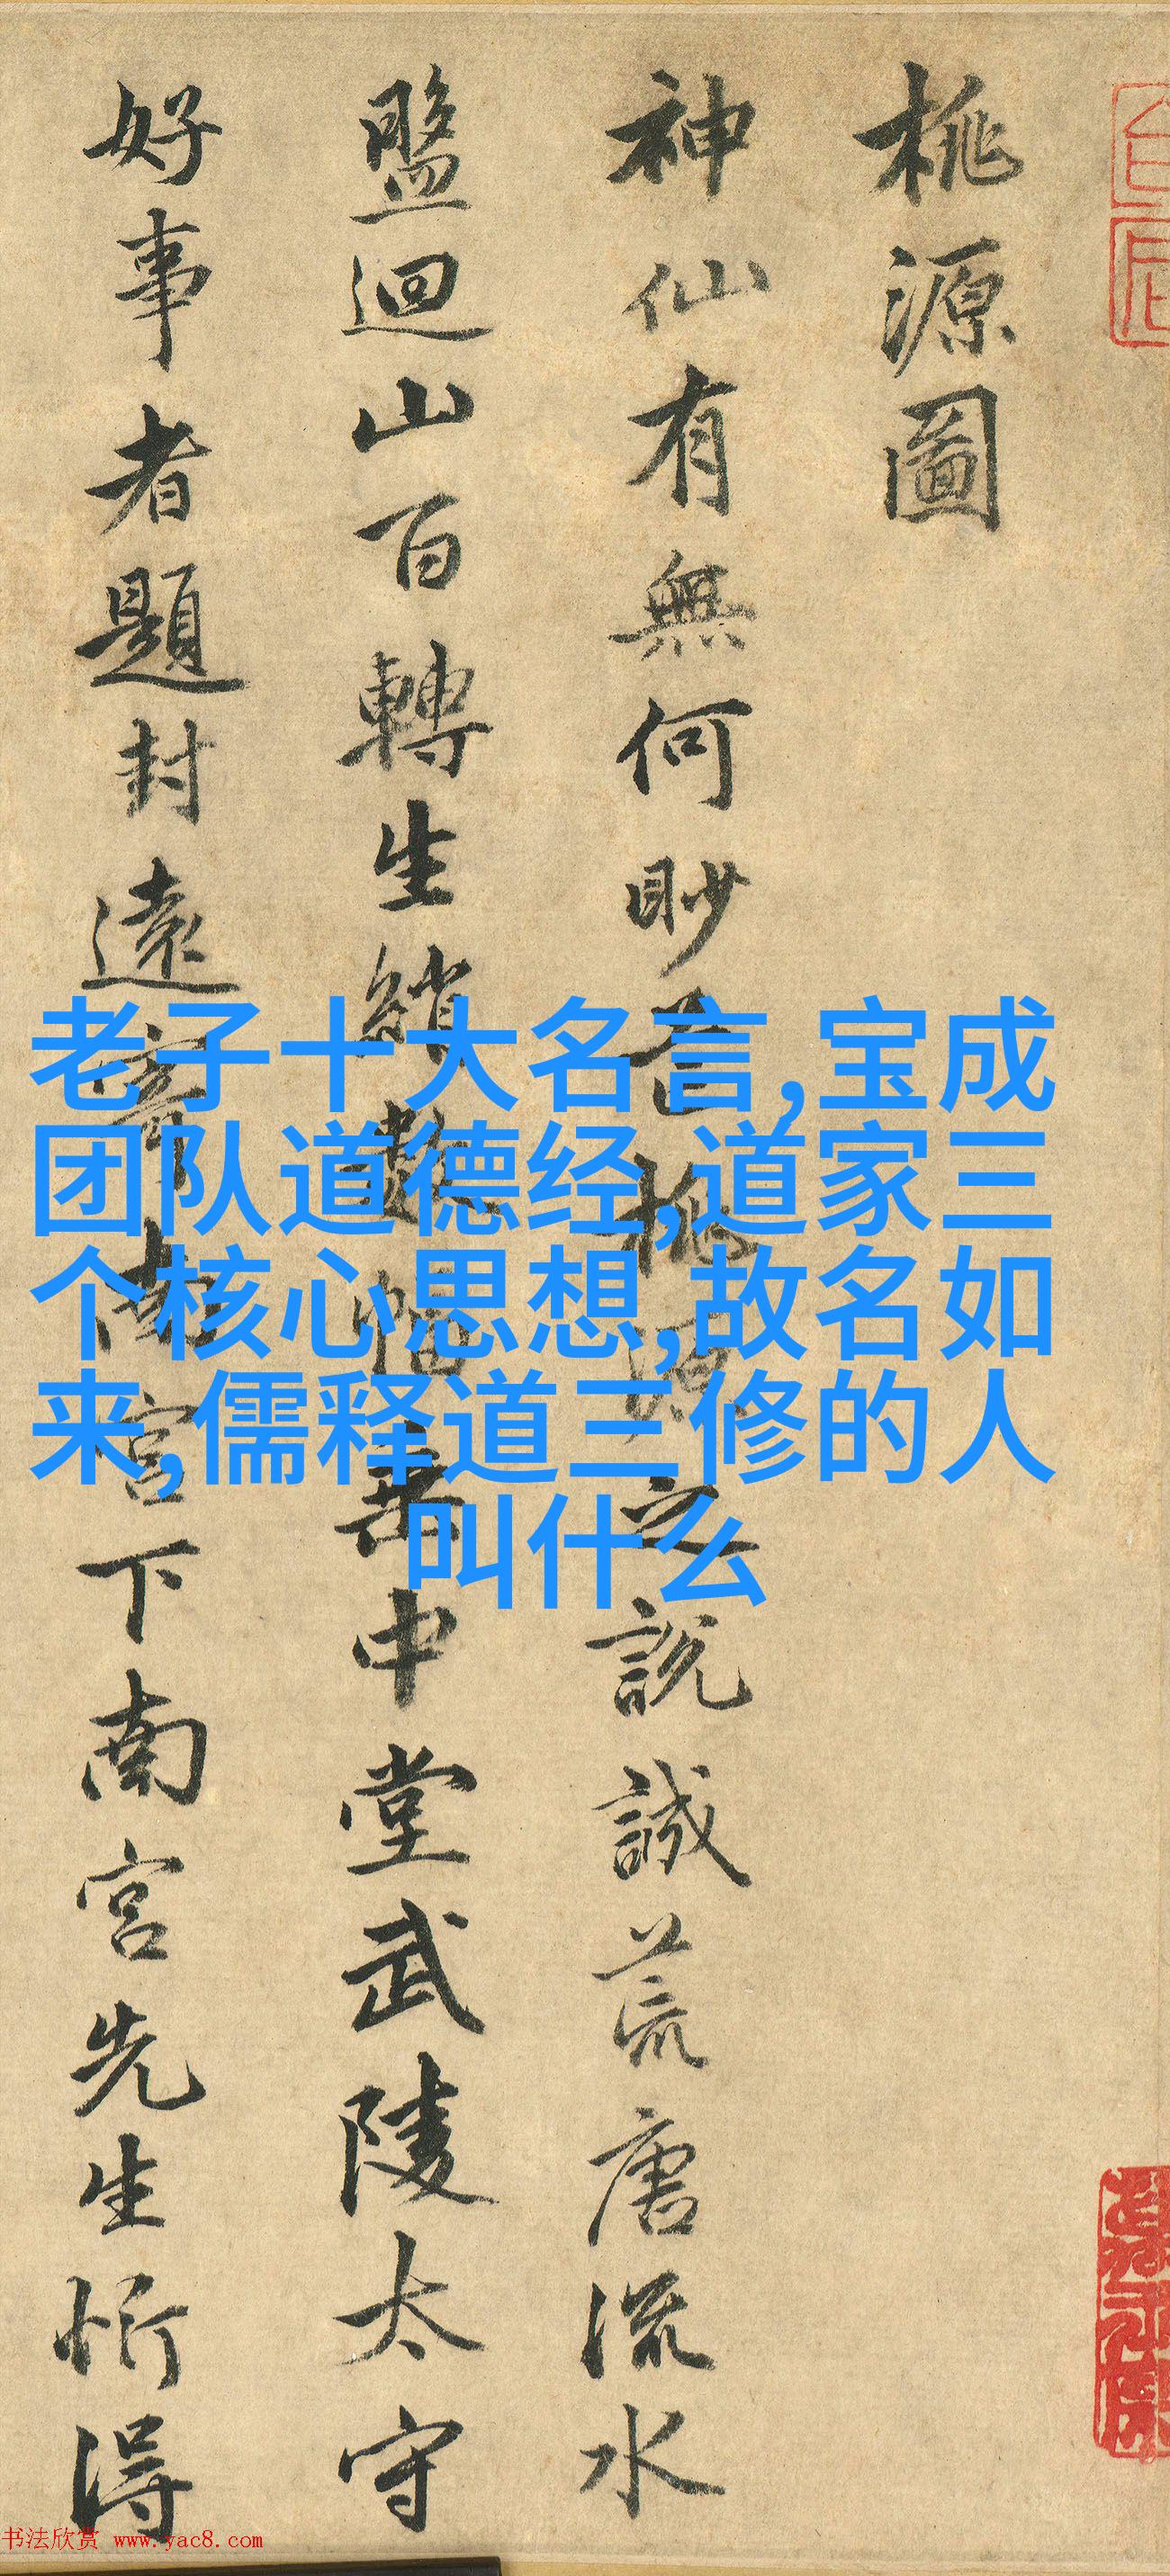 桃源圖
神仙有無何眇芒桃源之說誠荒唐流水
盤迴山百轉生綃數幅垂中堂武陵太守
好事者題封遠寄南宮下南宮先生忻得
老子十大名言,宝成
团队道德经,道家三
个核心思想,故名如
来,儒释道三修的人
叫什么
书法欣赏 www.yac8.com